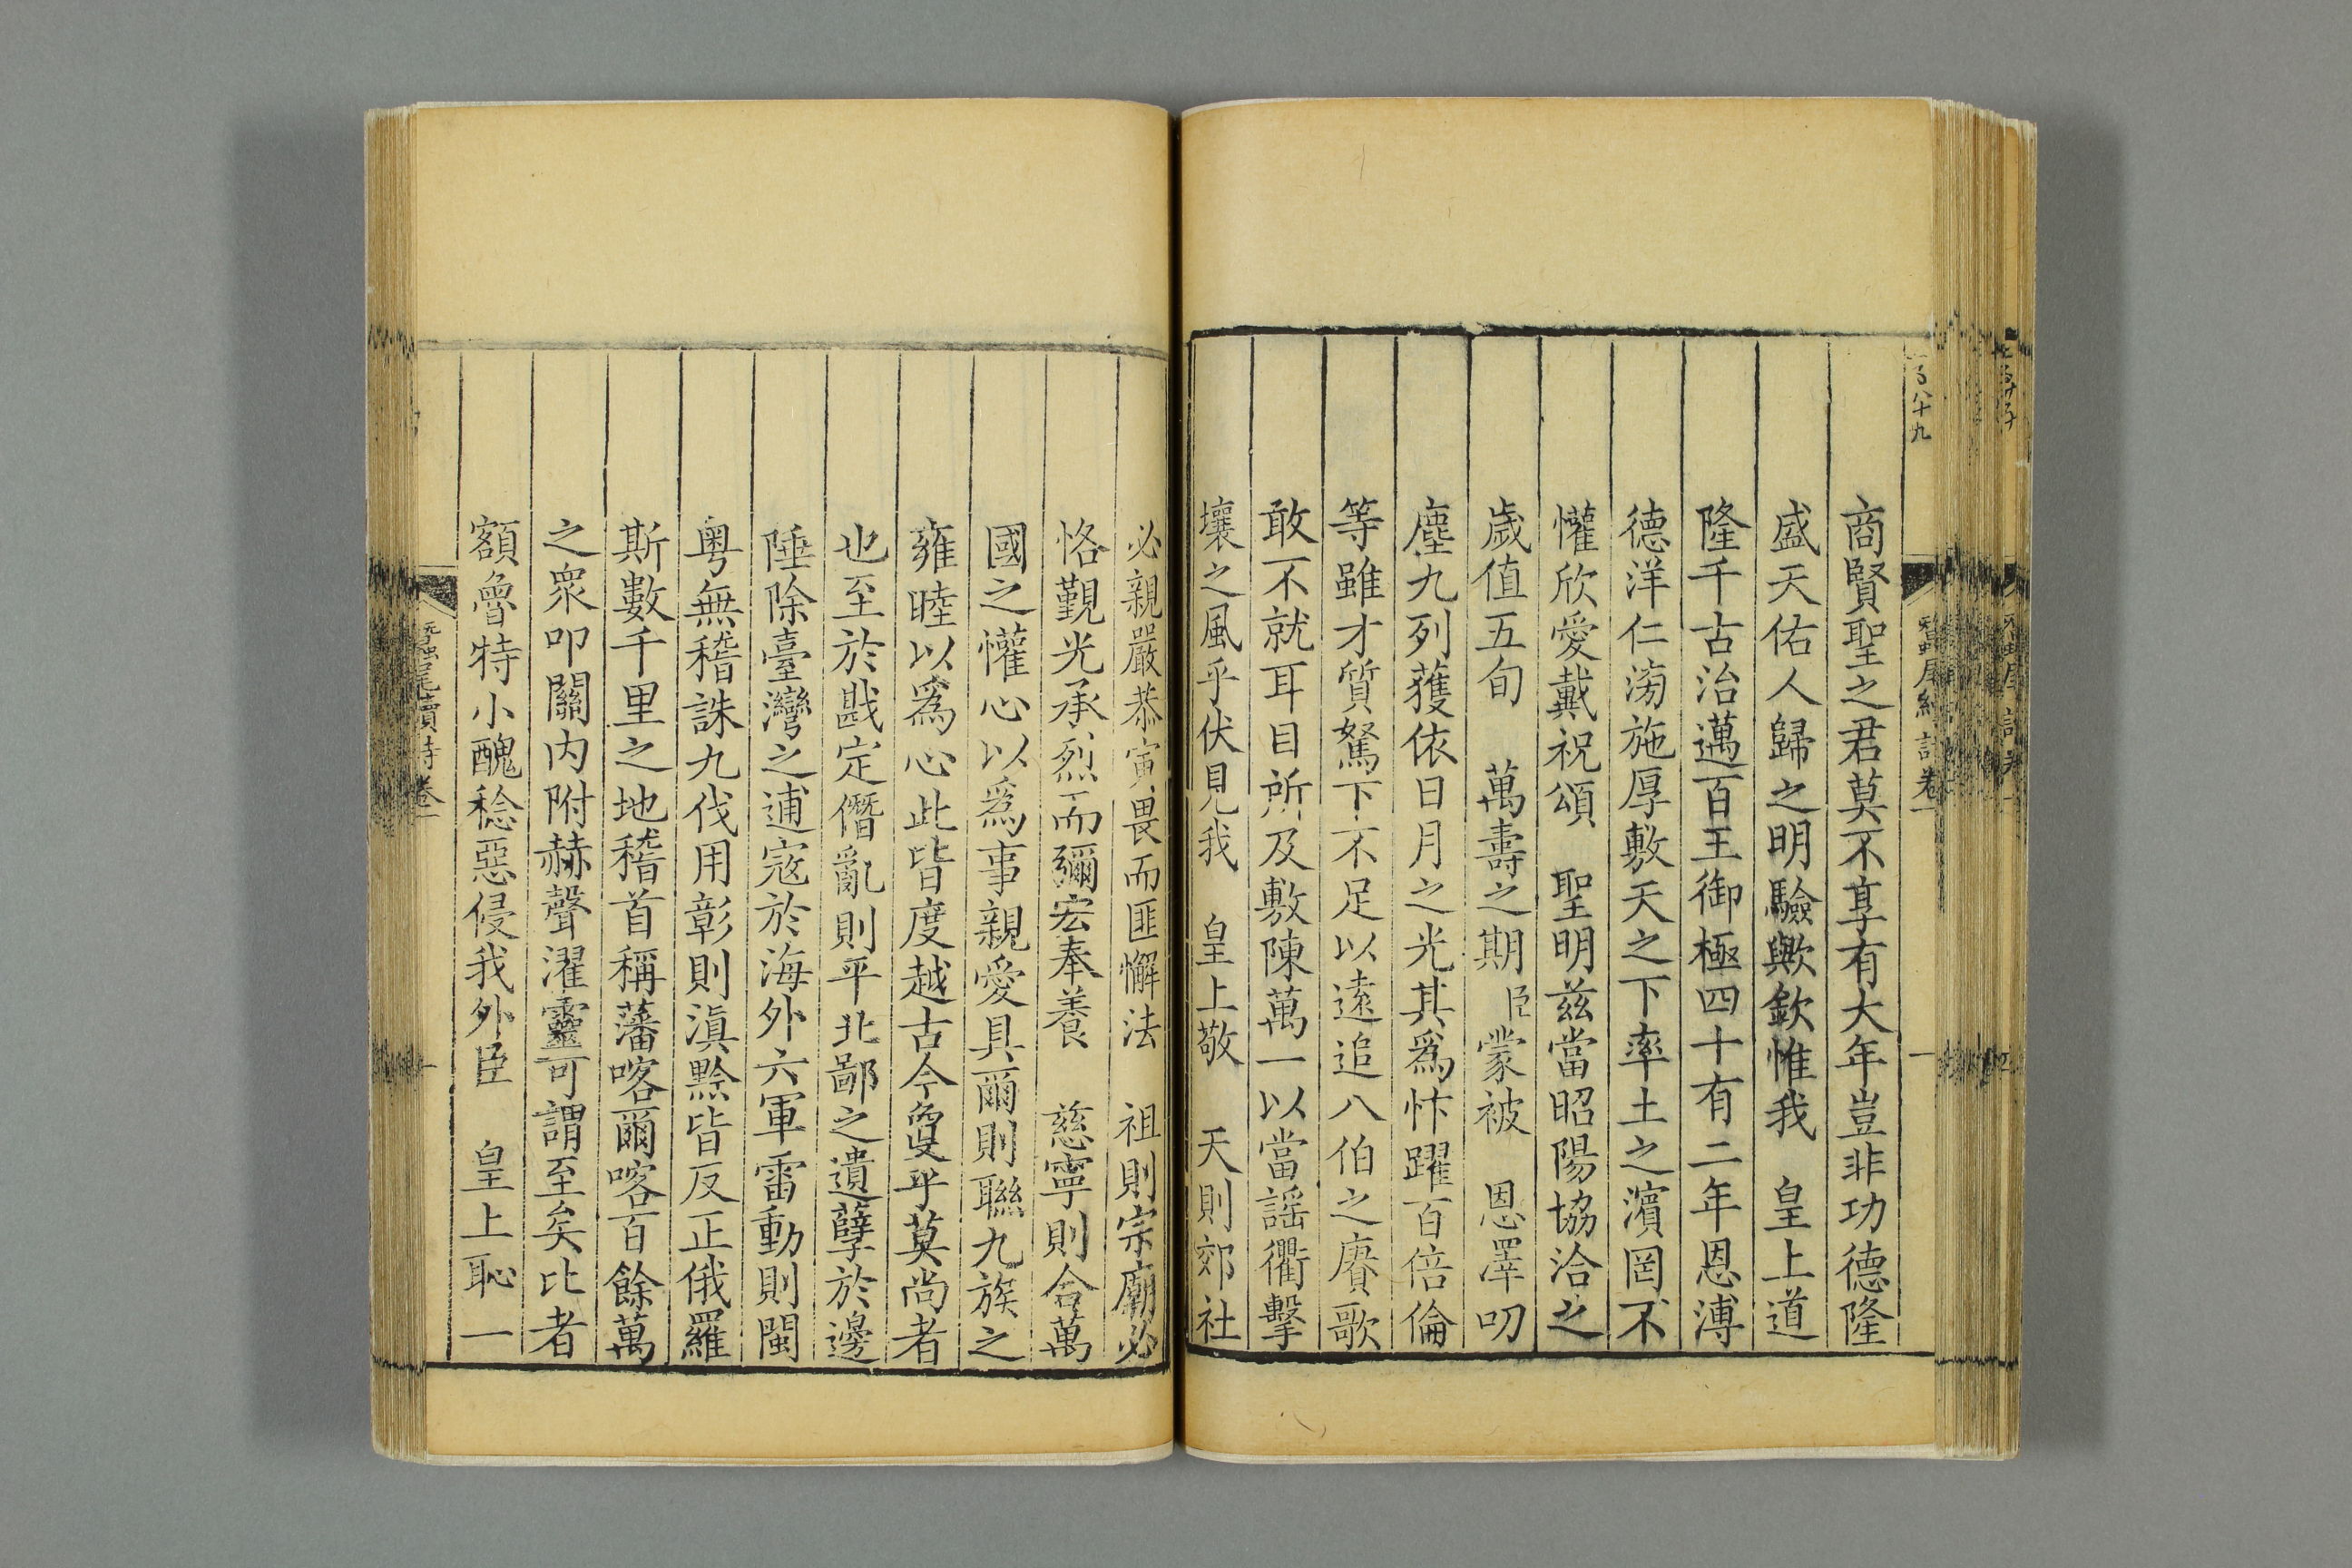 商賢聖之君莫不享有大年豈非功德隆
盛天佑人歸之明驗歟欽惟我 皇上道
隆千古治邁百王御極四十有二年恩溥
德洋仁滂施厚敷天之下率土之濱罔不
懽欣愛戴祝頌 聖明茲當昭陽協洽之
歲值五旬 萬壽之期臣蒙被 恩澤叨
塵九列獲依日月之光其爲忭躍百倍倫
等雖才質駑下不足以遠追八伯之賡歌
敢不就耳目所及敷陳萬一以當謡衢擊
壤之風乎伏見我 皇上敬 天則郊社
必親嚴恭寅畏而匪懈法 祖則宗廟必
恪覲光承烈而彌宏奉養 慈寧則合萬
國之懽心以爲事親愛具爾則聯九族之
雍睦以爲心此皆度越古今敻乎莫尚者
也至於戡定僭亂則平北鄙之遺孽於邊
陲除臺灣之逋寇於海外六軍雷動則閩
粤無稽誅九伐用彰則滇黔皆反正俄羅
斯數千里之地稽首稱藩喀爾喀百餘萬
之衆叩關内附赫聲濯靈可謂至矣比者
額魯特小醜稔惡侵我外臣 皇上恥一
蠶尾續詩卷一
一